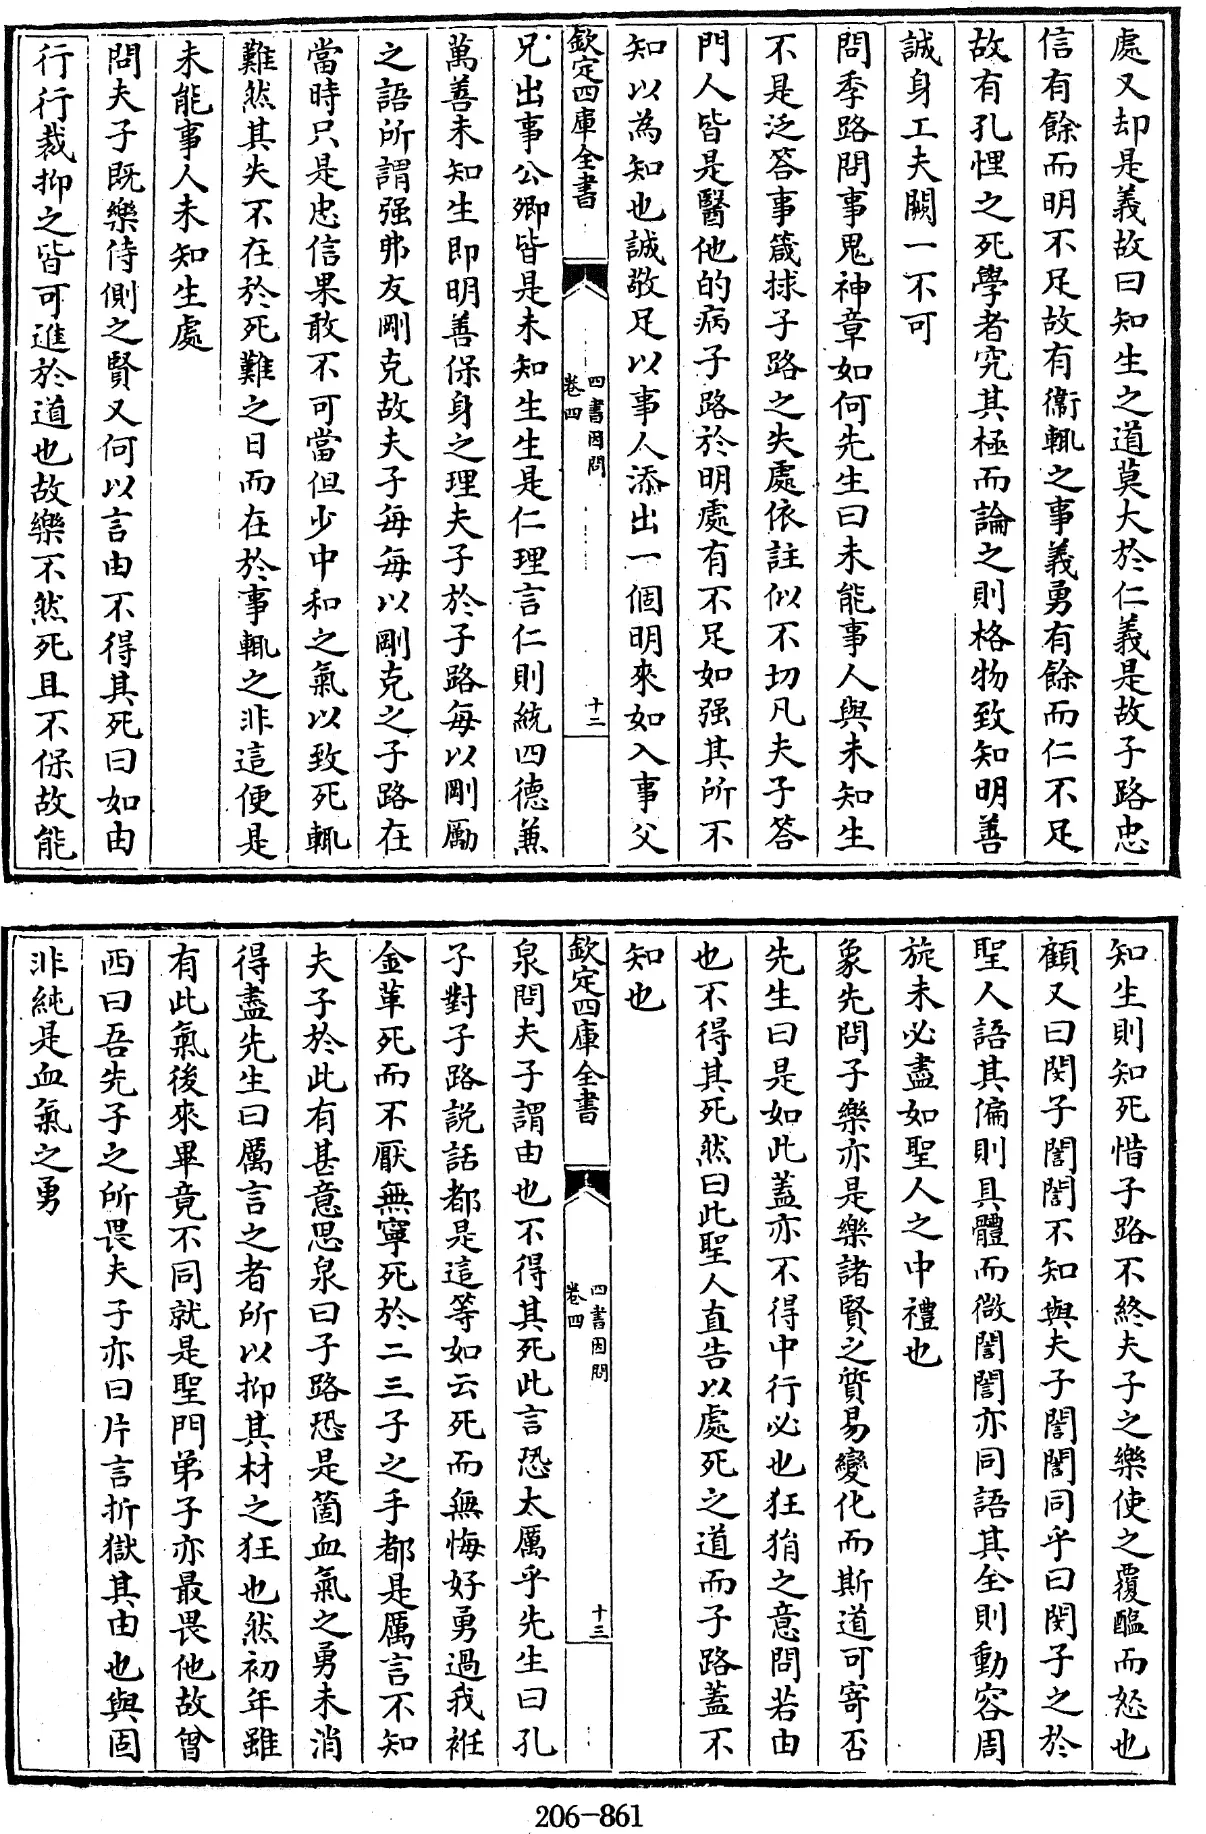 處又却是義故曰知生之道莫大於仁義是故子路忠
信有餘而明不足故有衞輒之事義勇有餘而仁不足
故有孔悝之死學者究其極而論之則格物致知明善
誠身工夫闕一不可
問季路問事鬼神章如何先生曰未能事人與未知生
不是泛答事箴捄子路之失處依註似不切凡夫子答
門人皆是醫他的病子路於明處有不足如强其所不
知以為知也誠敬足以事人添出一個明來如入事父
欽定四庫全書
四書因問
卷四
十二
兄出事公卿皆是未知生生是仁理言仁則統四德兼
萬善未知生即明善保身之理夫子於子路每以剛勵
之語所謂强弗友剛克故夫子每每以剛克之子路在
當時只是忠信果敢不可當但少中和之氣以致死輒
難然其失不在於死難之日而在於事輒之非這便是
未能事人未知生處
問夫子既樂侍側之賢又何以言由不得其死曰如由
行行裁抑之皆可進於道也故樂不然死且不保故能
知生則知死惜子路不終夫子之樂使之覆醢而怒也
顧又曰閔子誾誾不知與夫子誾誾同乎曰閔子之於
聖人語其偏則具體而微誾誾亦同語其全則動容周
旋未必盡如聖人之中禮也
象先問子樂亦是樂諸賢之質易變化而斯道可寄否
先生曰是如此蓋亦不得中行必也狂狷之意問若由
也不得其死然曰此聖人直告以處死之道而子路蓋不
知也
欽定四庫全書
四書因問
卷四
十三
泉問夫子謂由也不得其死此言恐太厲乎先生曰孔
子對子路説話都是這等如云死而無悔好勇過我袵
金革死而不厭無寧死於二三子之手都是厲言不知
夫子於此有甚意思泉曰子路恐是箇血氣之勇未消
得盡先生曰厲言之者所以抑其材之狂也然初年雖
有此氣後來畢竟不同就是聖門弟子亦最畏他故曾
西曰吾先子之所畏夫子亦曰片言折獄其由也與固
非純是血氣之勇
206-861